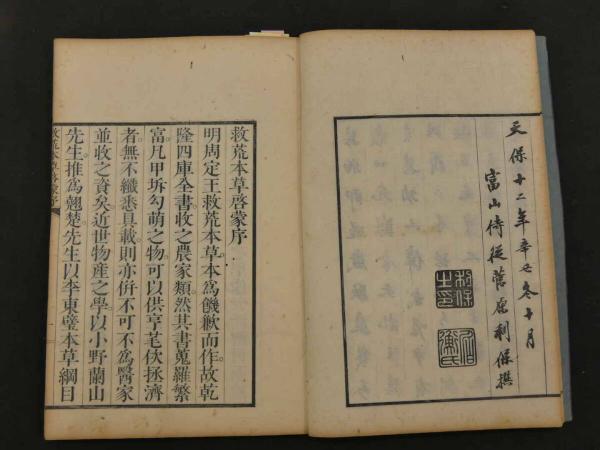 天保十二年辛丑冬十月
富山侍從菅原利保撰
利保之印
救荒本草啓蒙序
明周定王救荒本草本爲饑歉而作。故乾
隆四庫全書收之農家類。然其書蒐羅繁
富。凡甲坼勾萌之物。可以供亨芼佽拯濟
者。無不纖悉具載。則亦倂不可不爲醫家
並收之資矣。近世物産之學。以小野蘭山
先生。推爲翹楚。先生以李東璧本草綱目
救荒本草啓蒙序